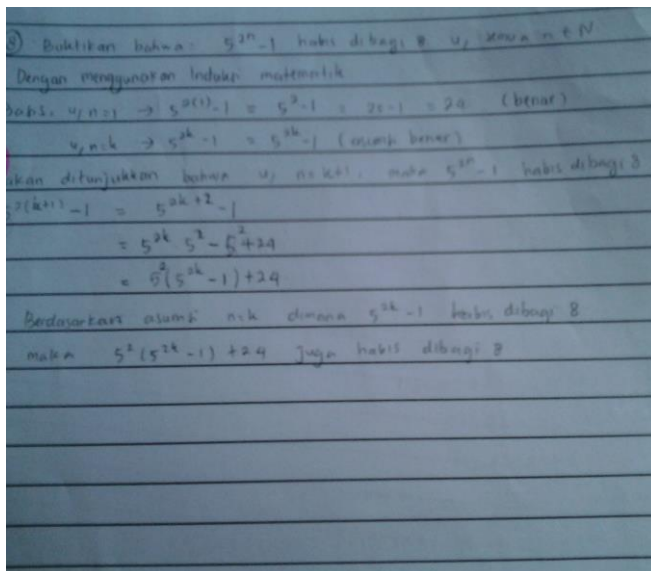 Buktikan bahwa : 5^{2n} - 1 habis dibagi 8 u/ semua n ∈ N
Dengan menggunakan Induksi matematik
Babs. u/ n=1 → 5^{2(1)} - 1 = 5^2 - 1 = 25 - 1 = 24 (benar)
u/ n=k → 5^{2k} - 1 = 5^{2k} - 1 (asumsi benar)
akan ditunjukkan bahwa u/ n=k+1, maka 5^{2n} - 1 habis dibagi 8
5^{2(k+1)} - 1 = 5^{2k+2} - 1
= 5^{2k} 5^2 - 5^2 + 24
= 5^2(5^{2k} - 1) + 24
Berdasarkan asumsi n=k dimana 5^{2k} - 1 habis dibagi 8
maka 5^2 (5^{2k} - 1) + 24 Juga habis dibagi 8